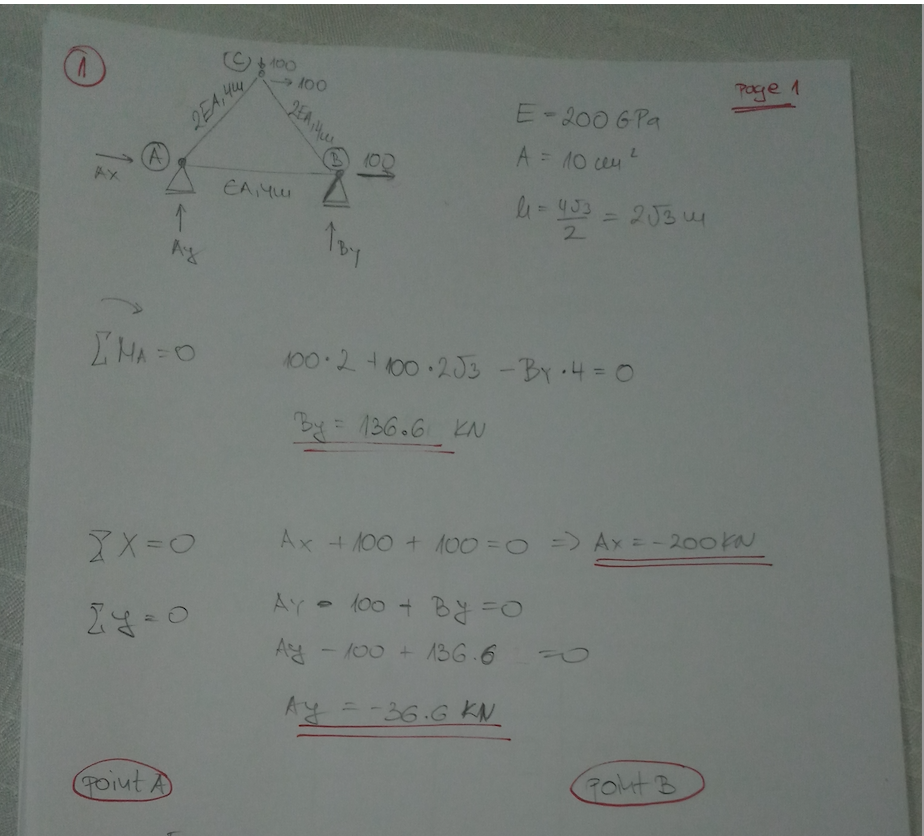 1
page 1
C 100
→ 100
2EA, 4m
2EA, 4m
A
B
100
Ax
EA, 4m
Ay
By
E = 200 GPa
A = 10 cm²
h = 4√3/2 = 2√3 m
ΣMA = 0
100·2 + 100·2√3 - By·4 = 0
By = 136.6 KN
ΣX = 0
Ax + 100 + 100 = 0 => Ax = -200 KN
Σy = 0
Ay - 100 + By = 0
Ay - 100 + 136.6 = 0
Ay = -36.6 KN
point A
point B